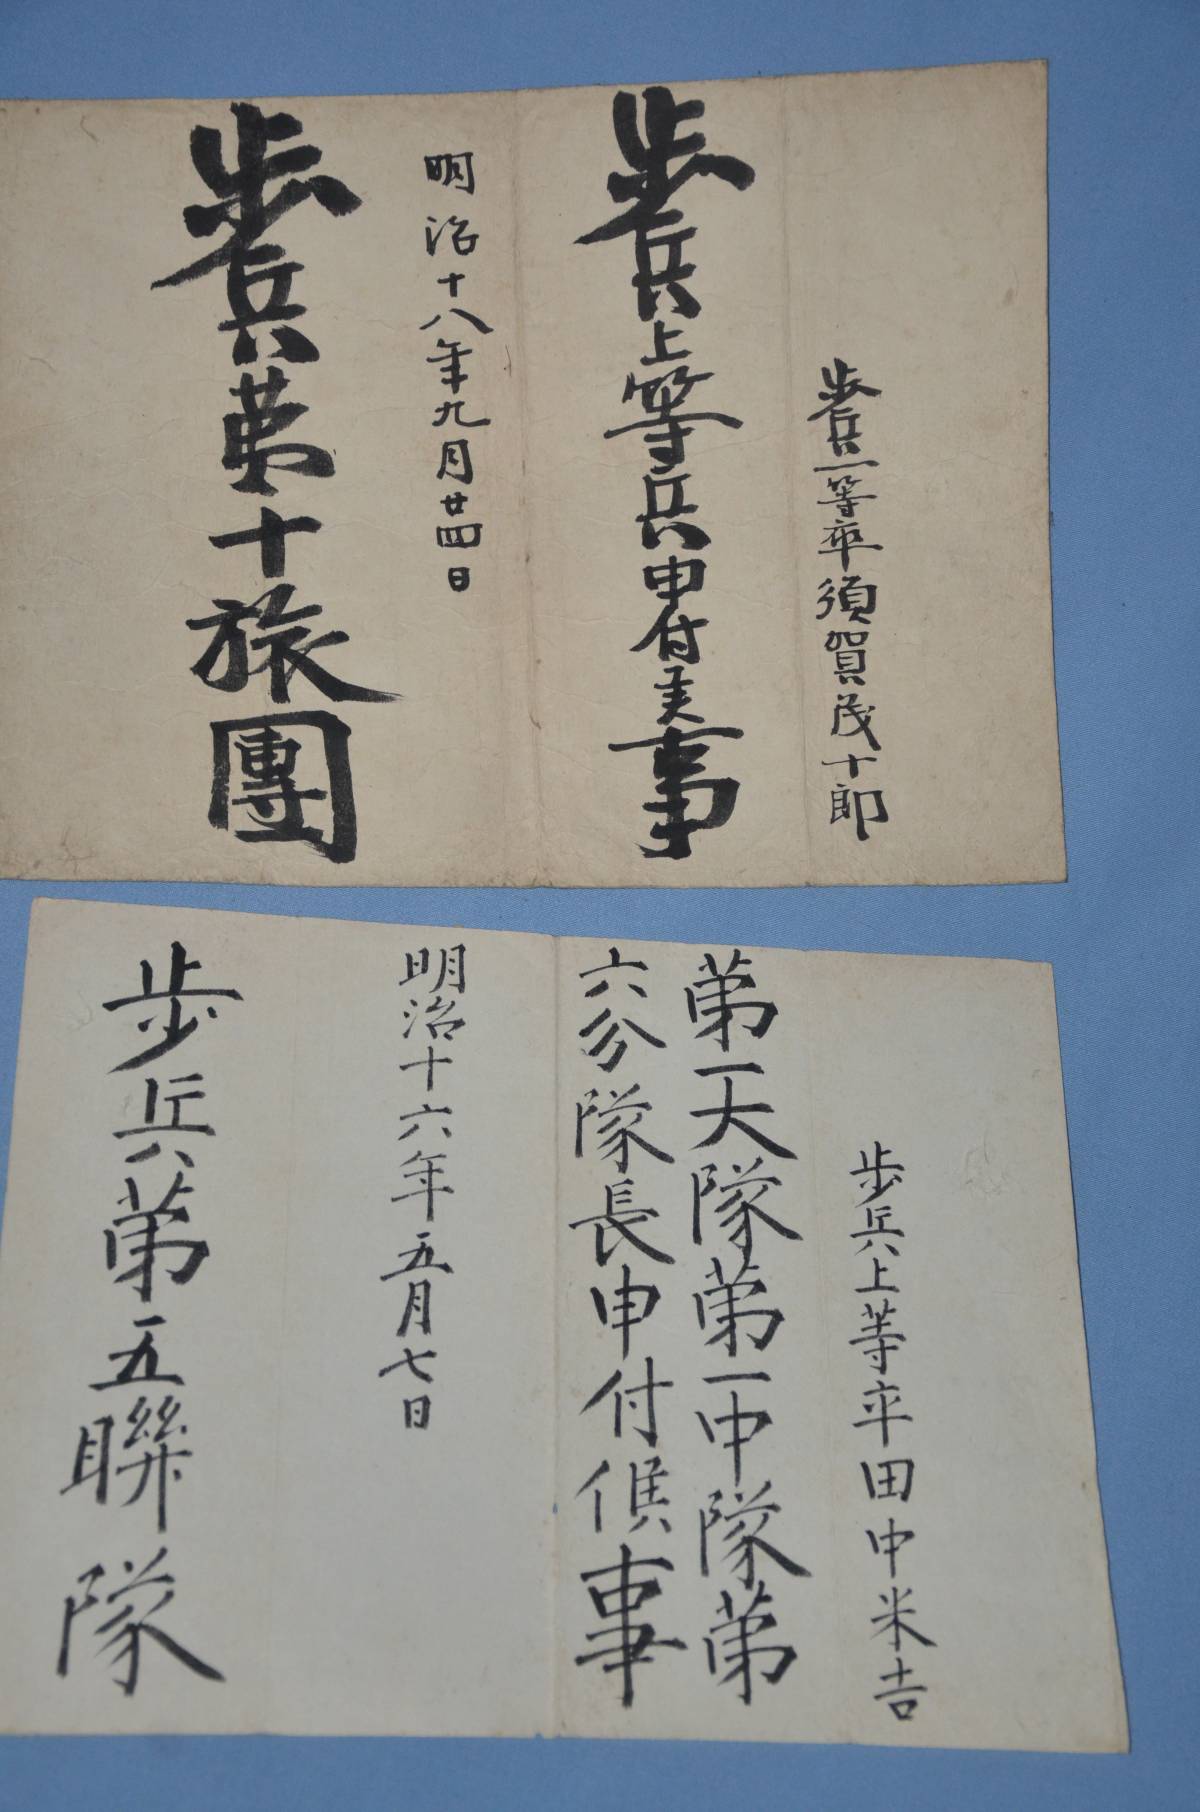 歩兵一等卒須賀茂十郎
歩兵上等兵申付候事
明治十八年九月廿四日
歩兵第十旅團
歩兵上等卒田中米吉
第一大隊第一中隊第
六分隊長申付候事
明治十六年五月七日
歩兵第五聯隊